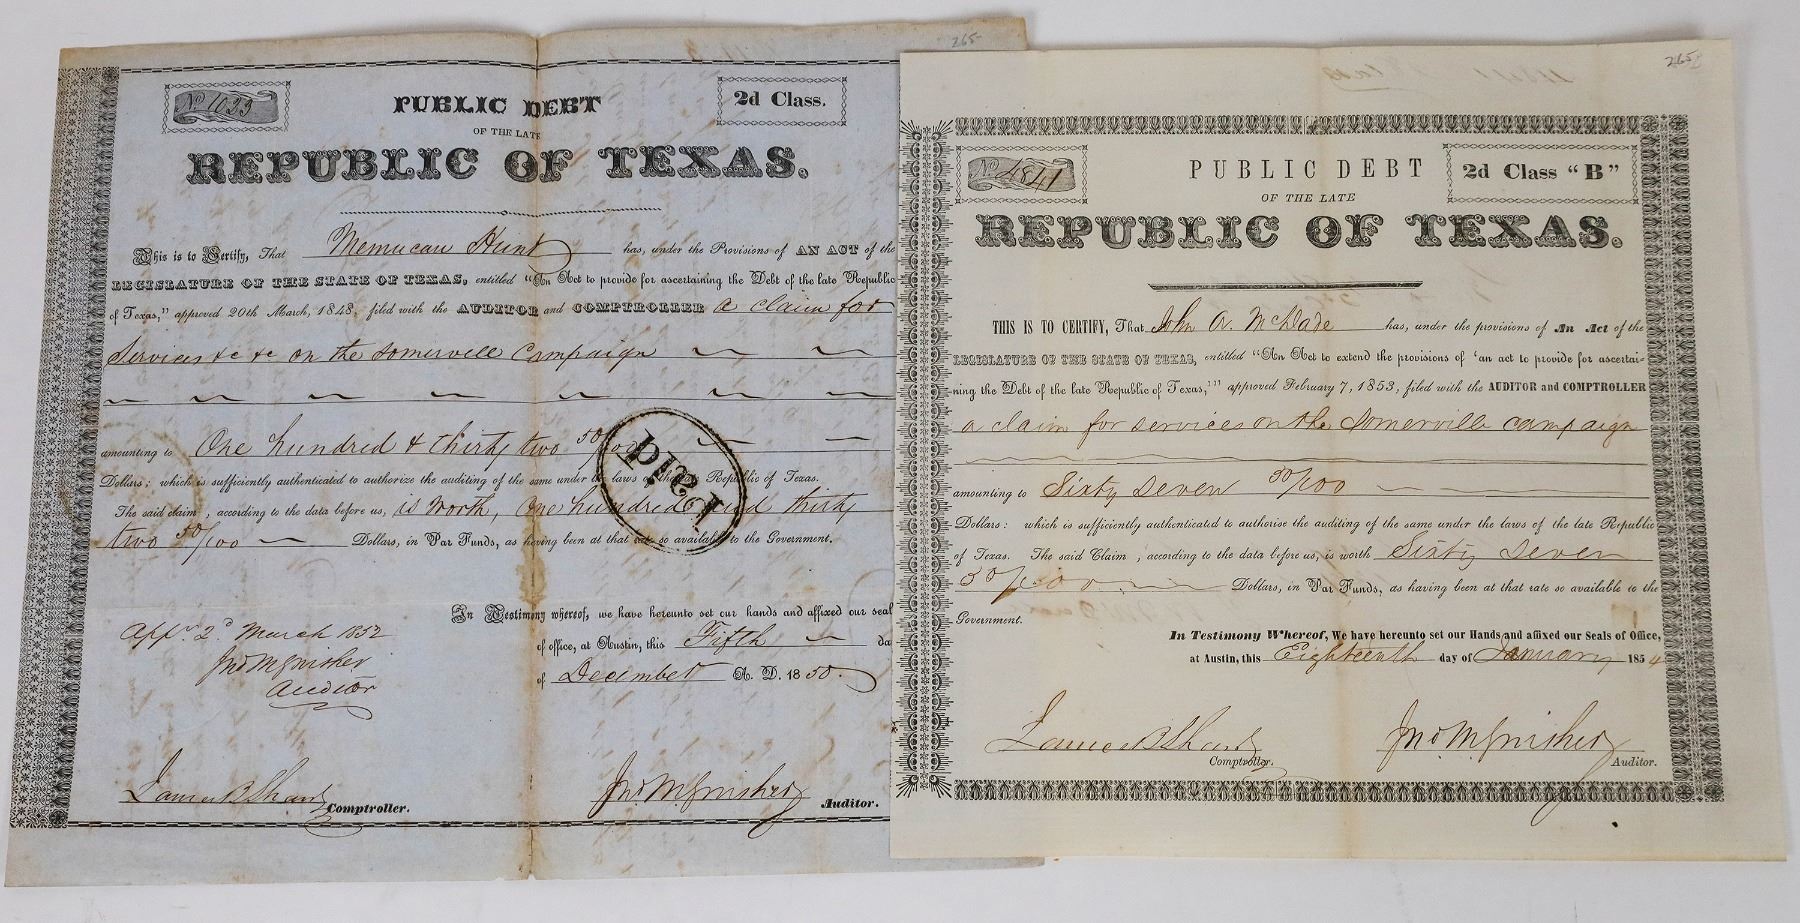 265
No 1033
PUBLIC DEBT
2d Class.
OF THE LATE
REPUBLIC OF TEXAS.
This is to Certify, That Memucan Hunt has, under the Provisions of AN ACT of the
LEGISLATURE OF THE STATE OF TEXAS, entitled "An Act to provide for ascertaining the Debt of the late Republic
of Texas," approved 20th March, 1848, filed with the AUDITOR and COMPTROLLER a claim for
Services &c &c on the Somervell Campaign
amounting to One hundred & thirty two 50/100
Dollars: which is sufficiently authenticated to authorize the auditing of the same under the laws of the late Republic of Texas.
The said claim, according to the data before us, is worth, One hundred and thirty
two 50/100 Dollars, in Par Funds, as having been at that rate so available to the Government.
Paid
In Testimony whereof, we have hereunto set our hands and affixed our seal
of office, at Austin, this Fifth da
of December A. D. 1850.
Appr. 2d March 1852
Jno M Swisher
Auditor
James B Shaw Comptroller.
Jno M Swisher Auditor.
265
No 4841
PUBLIC DEBT
2d Class "B"
OF THE LATE
REPUBLIC OF TEXAS.
THIS IS TO CERTIFY, That John A. McDade has, under the provisions of An Act of the
LEGISLATURE OF THE STATE OF TEXAS, entitled "An Act to extend the provisions of 'an act to provide for ascertai-
ning the Debt of the late Republic of Texas,'" approved February 7, 1853, filed with the AUDITOR and COMPTROLLER
a claim for services on the Somerville campaign
amounting to Sixty Seven 50/100
Dollars: which is sufficiently authenticated to authorise the auditing of the same under the laws of the late Republic
of Texas. The said Claim, according to the data before us, is worth Sixty Seven
50/100 Dollars, in Par Funds, as having been at that rate so available to the
Government.
In Testimony Whereof, We have hereunto set our Hands and affixed our Seals of Office,
at Austin, this Eighteenth day of January 1854
James B Shaw
Comptroller.
Jno M Swisher
Auditor.